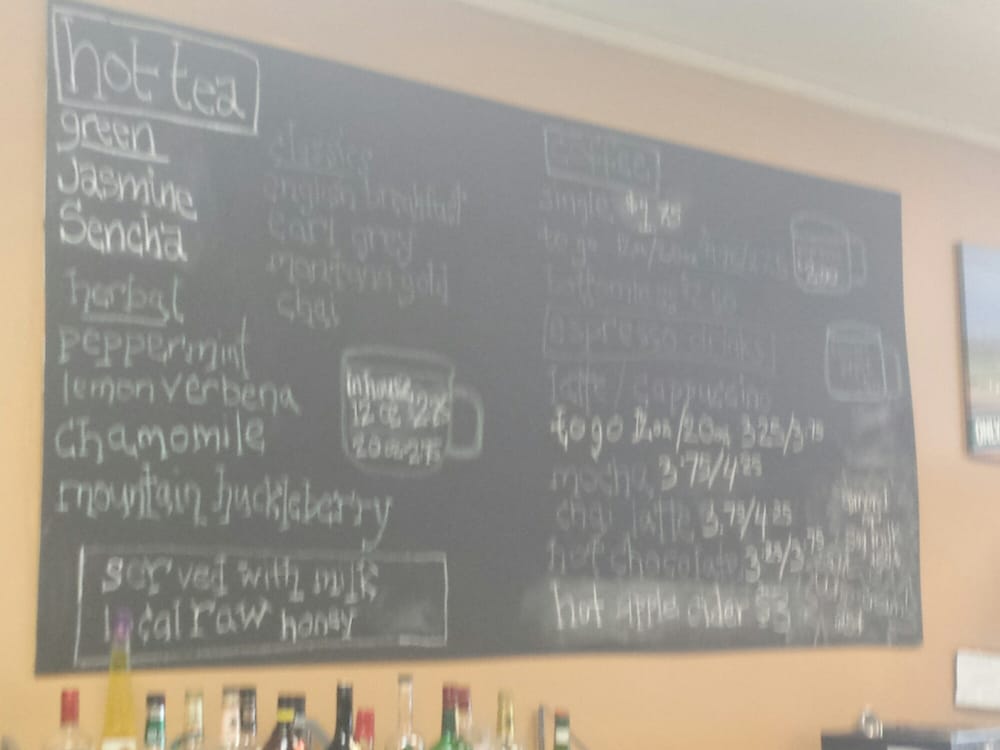 hot tea
green
Jasmine
Sencha
herbal
peppermint
lemon verbena
chamomile
mountain huckleberry
served with milk
local raw honey
classics
english breakfast
earl grey
montana gold
chai
In house
12 oz 2.25
20 oz 2.75
coffee
single $1.75
to go 12oz/20oz
bottomless $2.50
espresso drinks
latte/cappuccino
to go 12oz/20oz 3.25/3.75
mocha 3.75/4.25
chai latte 3.75/4.25
hot chocolate 3.25/3.75
hot apple cider $3
ONLY